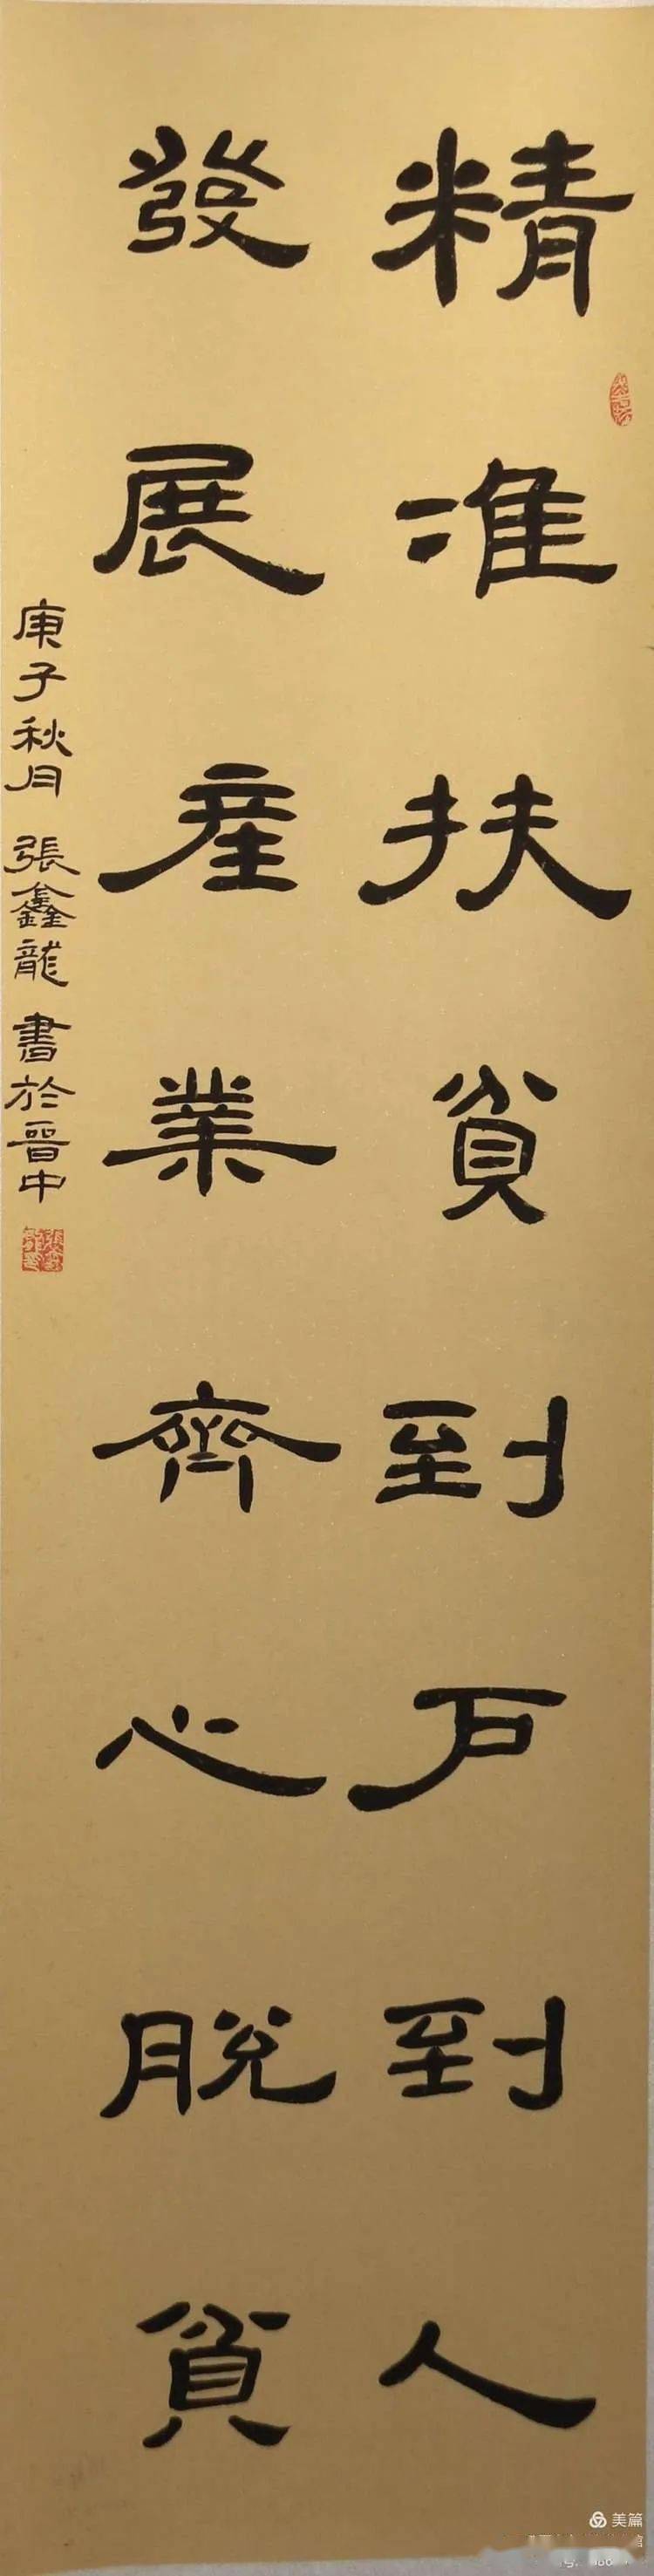 精准扶貧到户到人
發展產業齊心脫貧
庚子秋月 張鑫龍 書於晉中
美篇